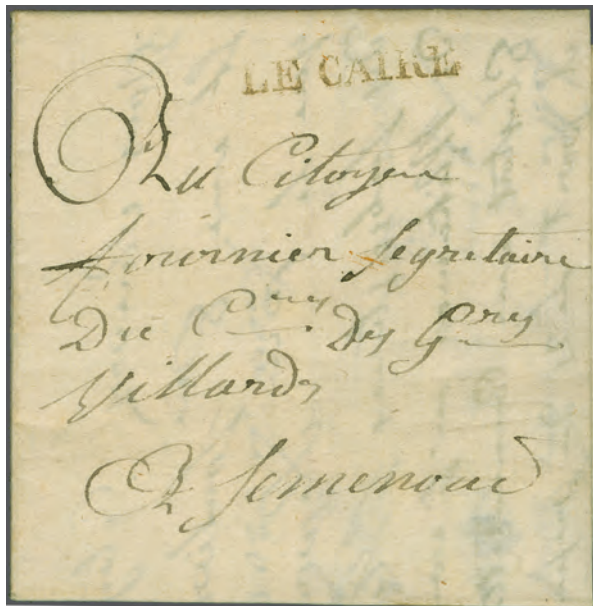 LE CAIRE
Au Citoyen
fournier Segretaire
Du C^res Des G^res
Villards
A Semenoud